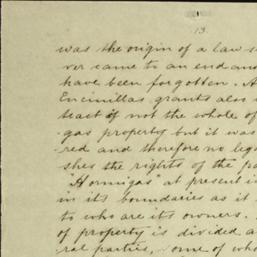 13
was the origin of a law s
ver came to an end and
have been forgotten. A
Encinillas grants also
least if not the whole of
gas property but it was
red and therefore no leg
shes the rights of the pa
"Hormigas" at present i
in its boundaries as it
to who are its owners.
of property is divided a
ral parties, some of who